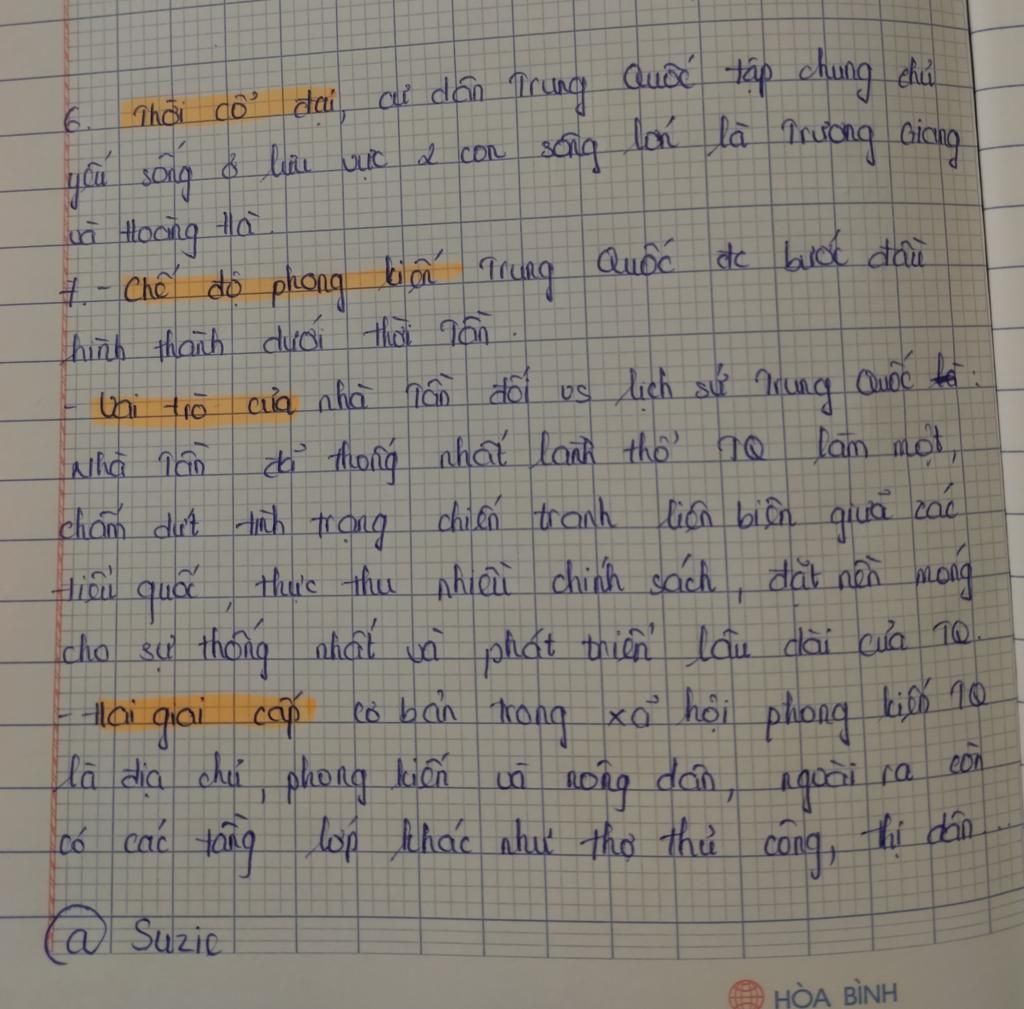 6. Thời cổ đại, cư dân Trung Quốc tập chung chủ
yếu sống ở lưu vực 2 con sông lớn là Trường Giang
và Hoàng Hà.
7. - Chế độ phong kiến Trung Quốc đc bước đầu
hình thành dưới thời Tần.
- Vai trò của nhà Tần đối vs lịch sử Trung Quốc:
Nhà Tần đã thống nhất lãnh thổ TQ làm một,
chấm dứt tình trạng chiến tranh liên biên giữa các
tiểu quốc, thực thu nhiều chính sách, đặt nền móng
cho sự thống nhất và phát triển lâu dài của TQ.
- Hai giai cấp cơ bản trong xã hội phong kiến TQ
là địa chủ, phong kiến và nông dân, ngoài ra còn
có các tầng lớp khác như thợ thủ công, thị dân...
@ Suzie
HÒA BÌNH